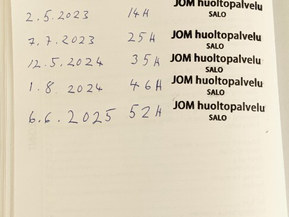 2.5.2023 14H JOM huoltopalvelu
SALO
7.7.2023 25H JOM huoltopalvelu
SALO
12.5.2024 35H JOM huoltopalvelu
SALO
1.8.2024 46H JOM huoltopalvelu
SALO
6.6.2025 52H JOM huoltopalvelu
SALO